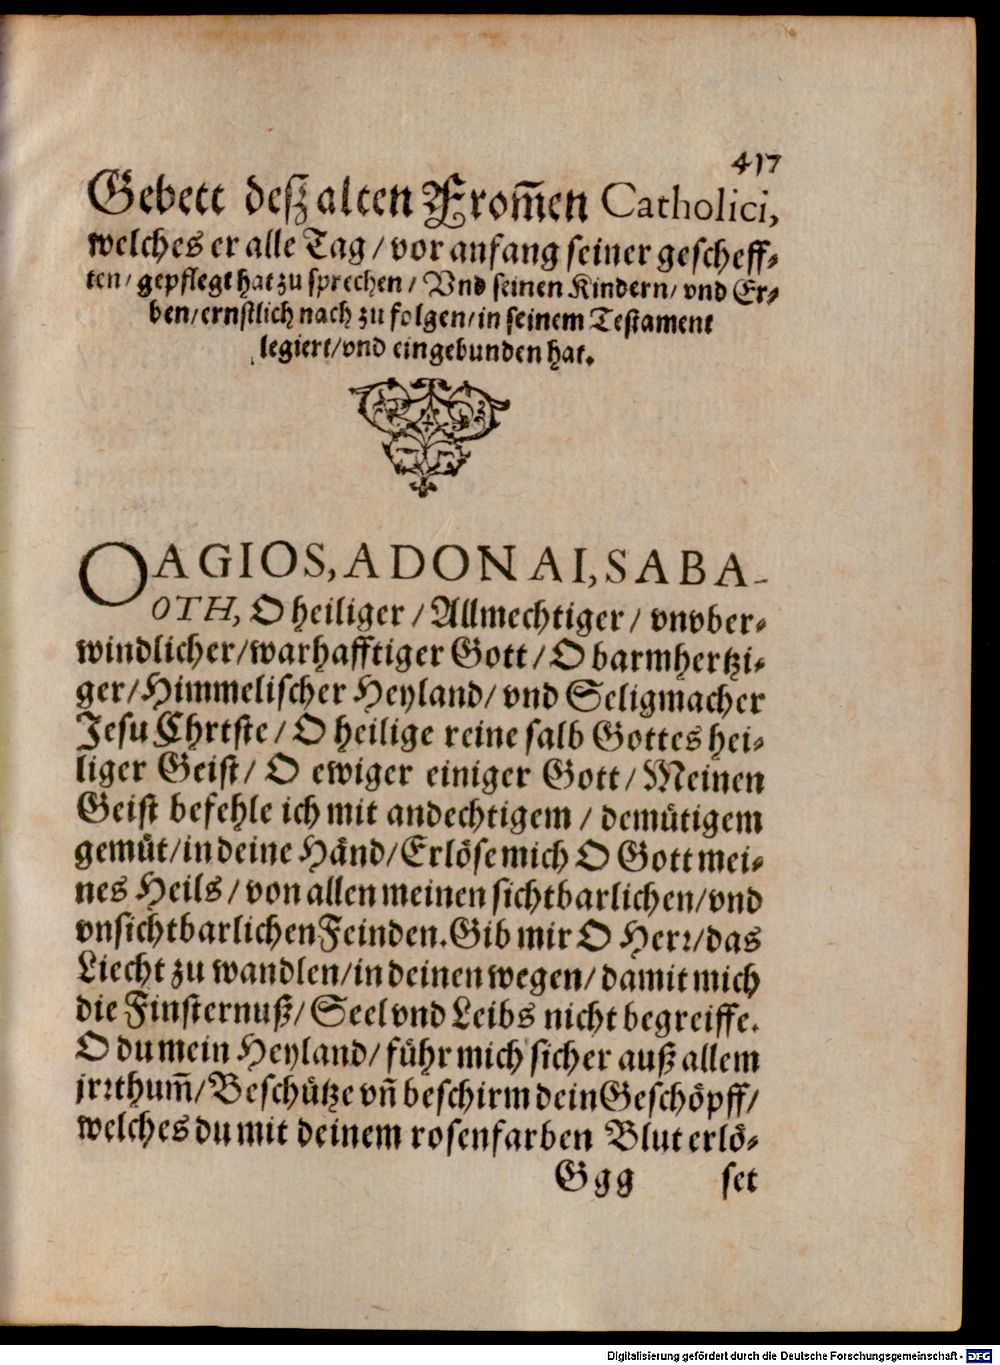 417
Gebett deß alten From̃en Catholici,
welches er alle Tag / vor anfang seiner gescheff-
ten / gepflegt hat zu sprechen / Vnd seinen Kindern / vnd Er-
ben / ernstlich nach zu folgen / in seinem Testament
legiert / vnd eingebunden hat.
O AGIOS, ADONAI, SABA-
OTH, O heiliger / Allmechtiger / vnvber-
windlicher / warhafftiger Gott / O barmhertzi-
ger / Himmelischer Heyland / vnd Seligmacher
Jesu Christe / O heilige reine salb Gottes hei-
liger Geist / O ewiger einiger Gott / Meinen
Geist befehle ich mit andechtigem / demütigem
gemüt / in deine Händ / Erlöse mich O Gott mei-
nes Heils / von allen meinen sichtbarlichen / vnd
vnsichtbarlichen Feinden. Gib mir O Herr / das
Liecht zu wandlen / in deinen wegen / damit mich
die Finsternuß / Seel vnd Leibs nicht begreiffe.
O du mein Heyland / führ mich sicher auß allem
jrrthum̃ / Beschütze vñ beschirm dein Geschöpff /
welches du mit deinem rosenfarben Blut erlö-
Ggg set
Digitalisierung gefördert durch die Deutsche Forschungsgemeinschaft - DFG